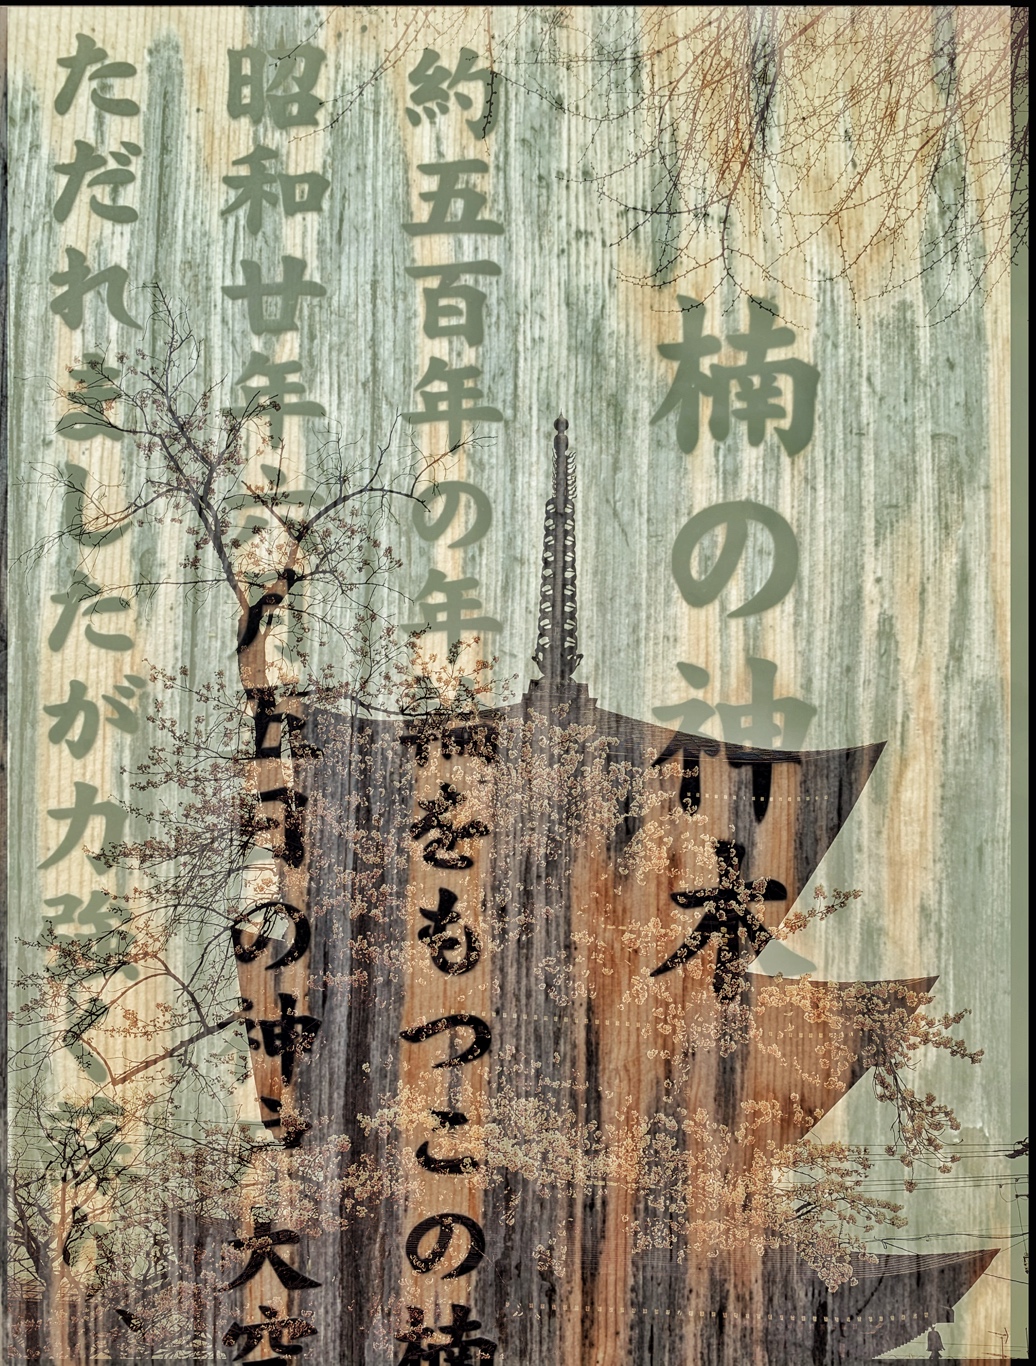 楠の神木
約五百年の年輪をもつこの楠
昭和廿年六月五日の神戸大空
ただれましたが力強く